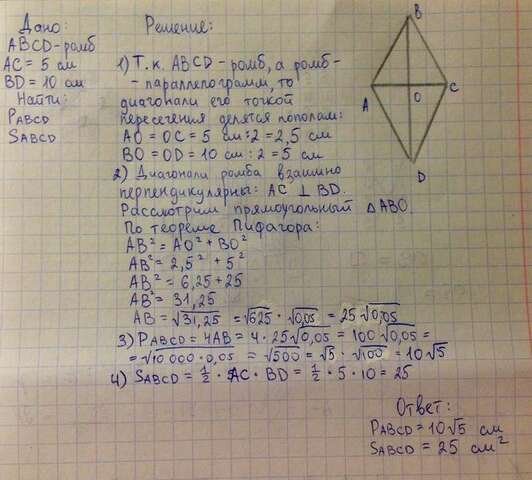 Дано:
ABCD - ромб
AC = 5 см
BD = 10 см
Найти:
PABCD
SABCD
Решение:
1) Т.к. ABCD - ромб, а ромб -
- параллепограмм, то
диагонали его точкой
пересечения делятся пополам:
AO = OC = 5 см : 2 = 2,5 см
BO = OD = 10 см : 2 = 5 см
2) Диагонали ромба взаимно
перпендикулярны: AC ⊥ BD.
Рассмотрим прямоугольный △ABO.
По теореме Пифагора:
AB² = AO² + BO²
AB² = 2,5² + 5²
AB² = 6,25 + 25
AB² = 31,25
AB = √31,25 = √625 · √0,05 = 25√0,05
3) PABCD = 4AB = 4 · 25√0,05 = 100√0,05 =
= √10 000 · 0,05 = √500 = √5 · √100 = 10√5
4) SABCD = ½ · AC · BD = ½ · 5 · 10 = 25
Ответ:
PABCD = 10√5 см
SABCD = 25 см²
B
A
C
O
D